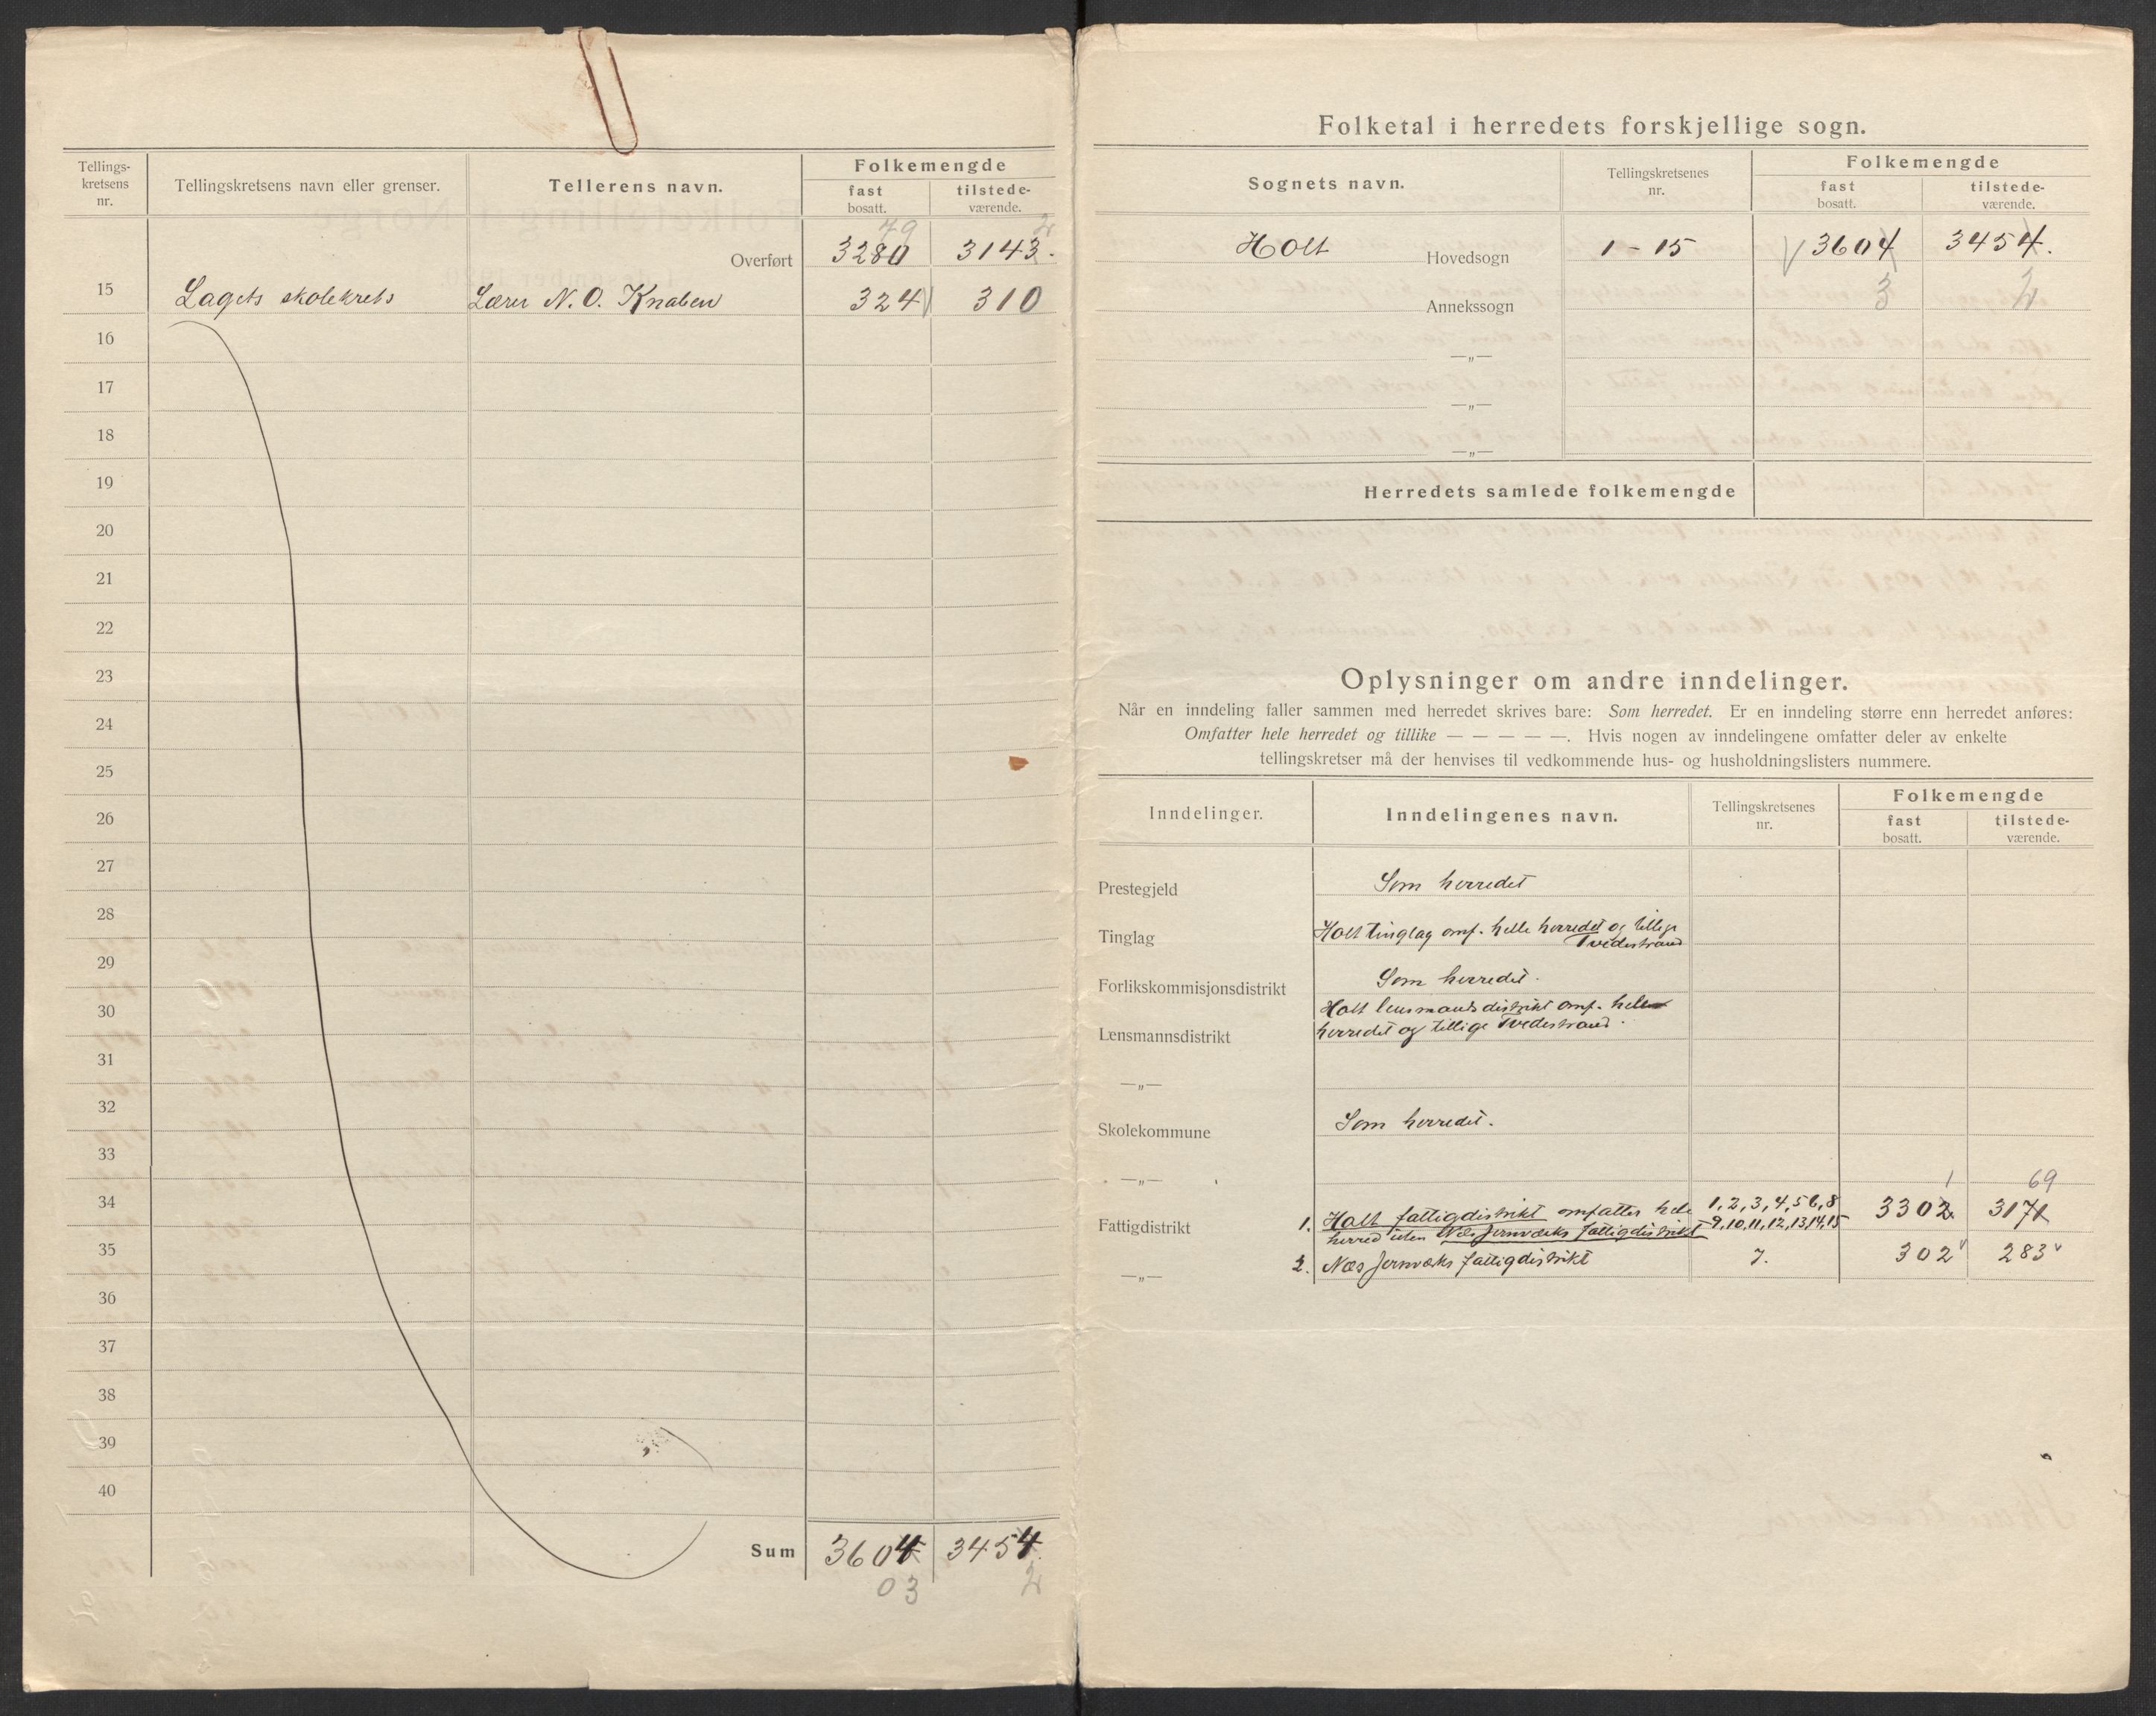 Tellings-
kretsens
nr.
Tellingskretsens navn eller grenser.
Tellerens navn.
Folkemengde
fast
bosatt.
tilstede-
værende.
79 2
Overført 3280 3143.
15 Lagets skolekrets Lærer N. O. Knaben 324 310
16
17
18
19
20
21
22
23
24
25
26
27
28
29
30
31
32
33
34
35
36
37
38
39
40
Sum 3604 3454.
03 2
Folketal i herredets forskjellige sogn.
Sognets navn.
Tellingskretsenes
nr.
Folkemengde
fast
bosatt.
tilstede-
værende.
Holt Hovedsogn 1 - 15 3604 3454.
3 2
Annekssogn
—„—
—„—
—„—
Herredets samlede folkemengde
Oplysninger om andre inndelinger.
Når en inndeling faller sammen med herredet skrives bare: Som herredet. Er en inndeling større enn herredet anføres:
Omfatter hele herredet og tillike — — — — —. Hvis nogen av inndelingene omfatter deler av enkelte
tellingskretser må der henvises til vedkommende hus- og husholdningslisters nummere.
Inndelinger.
Inndelingenes navn.
Tellingskretsenes
nr.
Folkemengde
fast
bosatt.
tilstede-
værende.
Prestegjeld Som herredet
Tinglag Holt tinglag omf. hele herredet og tillige
Tvedestrand
Forlikskommisjonsdistrikt Som herredet.
Holt lensmandsdistrikt omf. hele
Lensmannsdistrikt herredet og tillige Tvedestrand.
—„—
Skolekommune Som herredet.
—„— 1 69
Fattigdistrikt 1. Holt fattigdistrikt omfatter hele 1, 2, 3, 4, 5 6, 8 3302 3171
herred uten Nes Jernverks fattigdistrikt 9, 10, 11, 12, 13, 14, 15
—„— 2. Næs Jernverks fattigdistrikt 7. 302 283